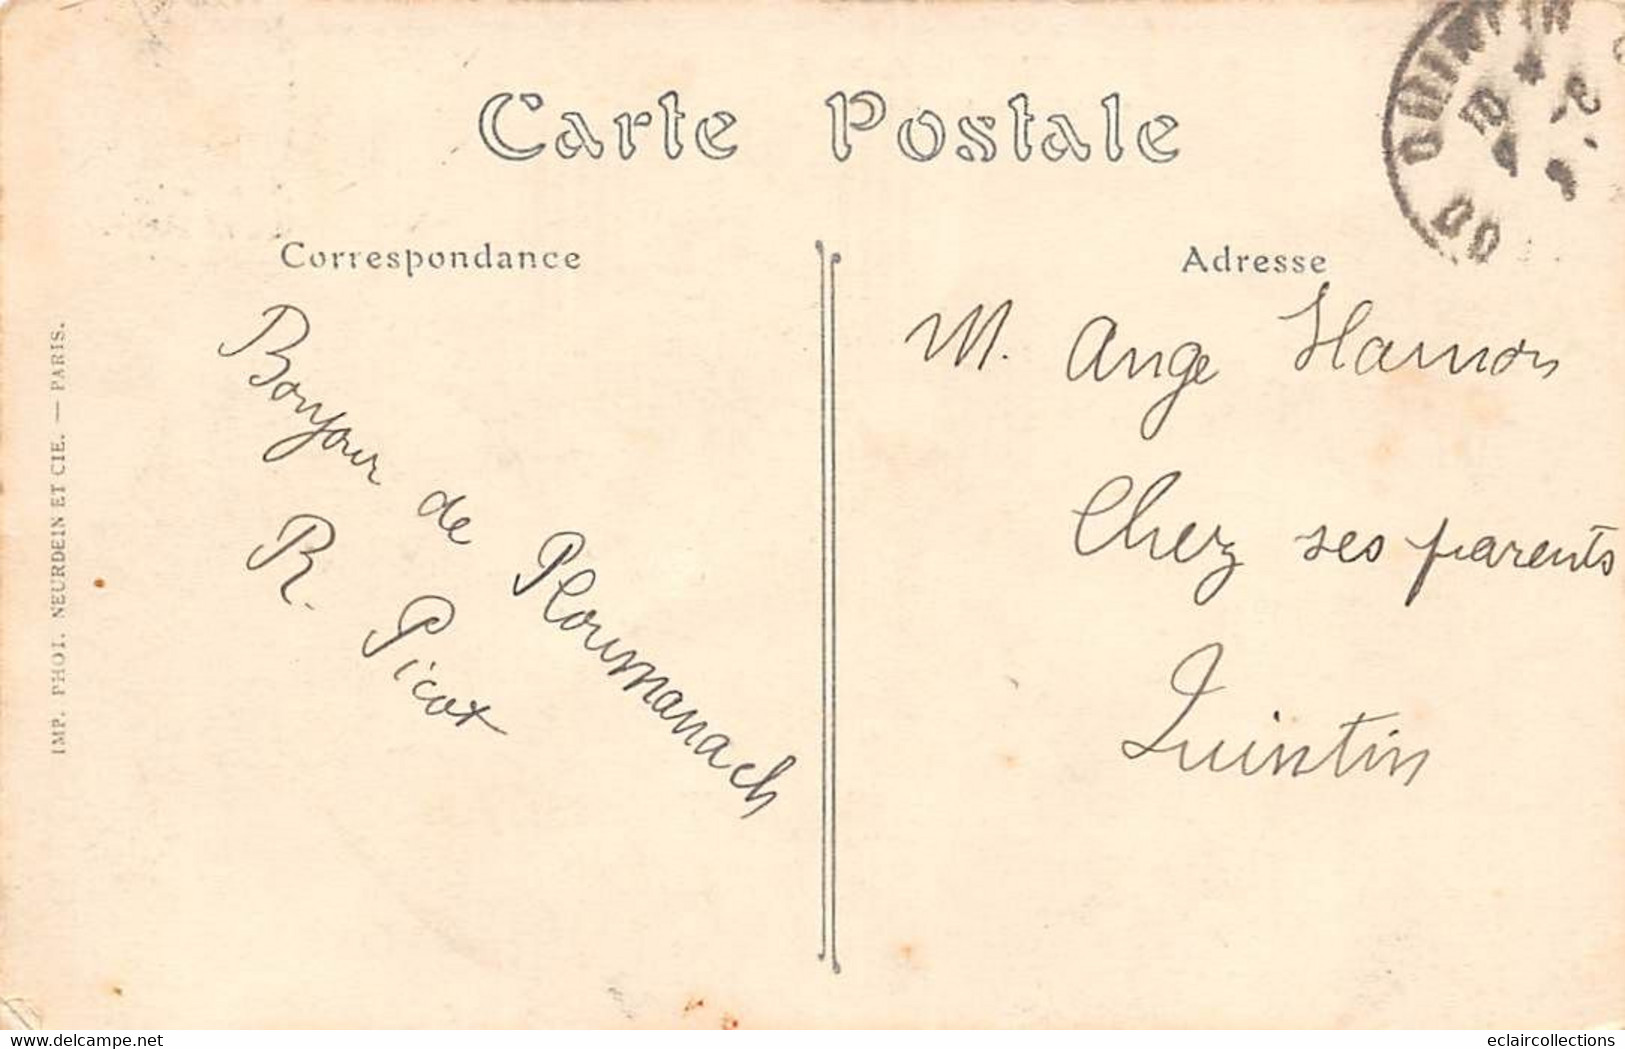 Carte Postale
Correspondance
Adresse
QUINTIN
Bonjour de Ploumanach
R. Picot
M. Ange Hamon
Chez ses parents
Quintin
IMP. PHOT. NEURDEIN ET CIE. — PARIS.
www.delcampe.net
eclaircollections